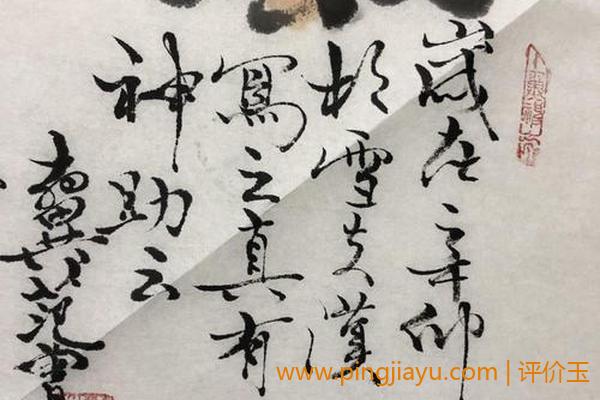 歲在辛卯
於雪漢
寫之真有
神助云
翼范曾
www.pingjiayu.com | 评价玉